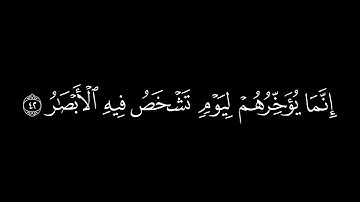 إِنَّمَا يُؤَخِّرُهُمْ لِيَوْمٍ تَشْخَصُ فِيهِ الْأَبْصَٰرُ ٤٢